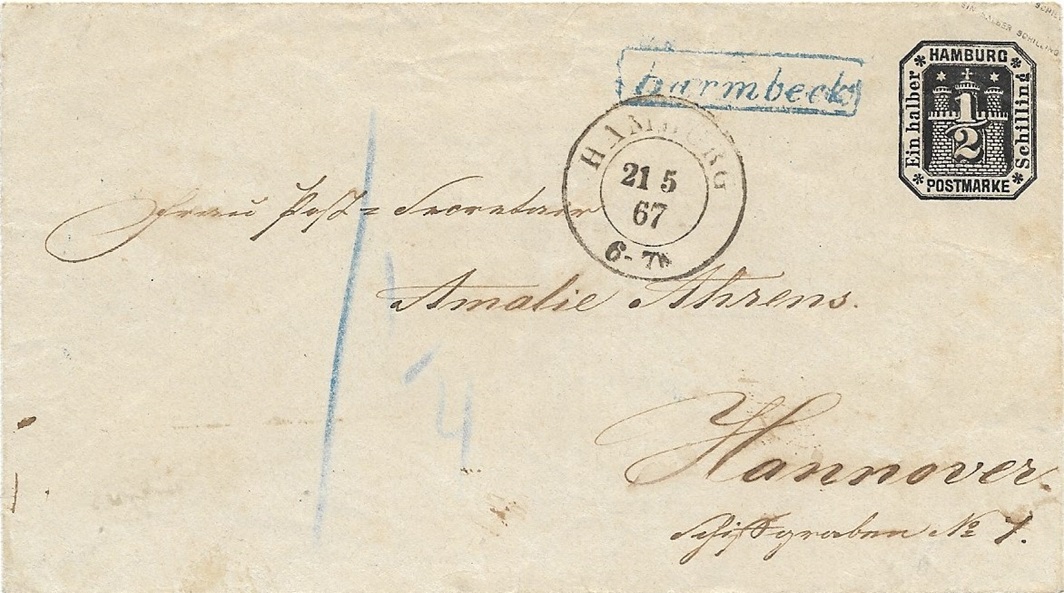 EIN HALBER SCHILLING
HAMBURG
Ein halber
1/2
Schilling
POSTMARKE
barmbeck
HAMBURG
21 5
67
6-7
Frau Post=Secretair
Amalie Ahrens.
1
4
Hannover.
Schiffgraben No 7.